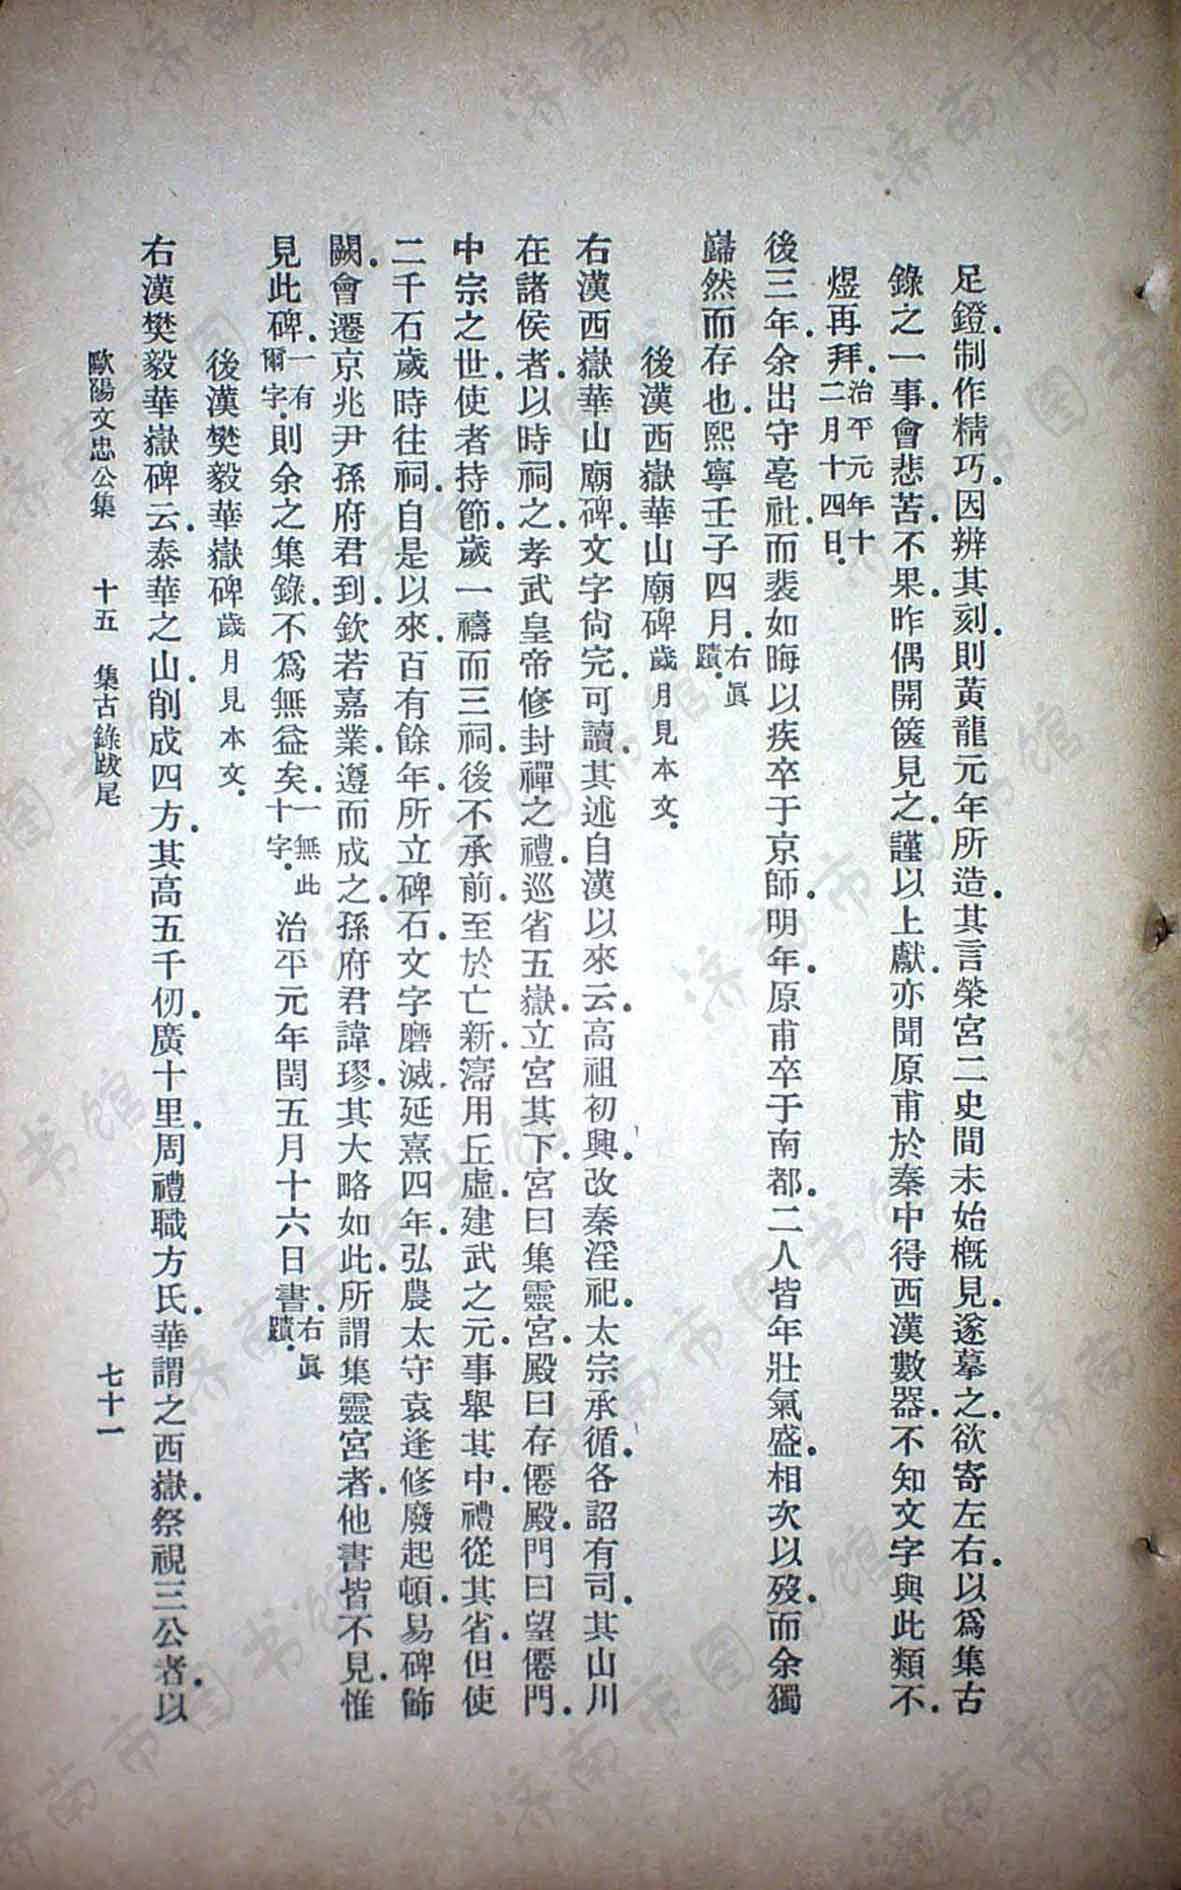 足鐙.制作精巧.因辨其刻.則黃龍元年所造.其言榮宮二史間未始槪見.遂摹之.欲寄左右.以爲集古
錄之一事.會悲苦.不果.昨偶開篋見之.謹以上獻.亦聞原甫於秦中得西漢數器.不知文字與此類不.
煜再拜.治平元年十二月十四日.
後三年.余出守亳社.而裴如晦以疾卒于京師.明年.原甫卒于南都.二人皆年壯氣盛.相次以歿.而余獨
巋然而存也.熙寧壬子四月.右眞蹟.
後漢西嶽華山廟碑歲月見本文.
右漢西嶽華山廟碑.文字尙完可讀.其述自漢以來.云高祖初興.改秦淫祀.太宗承循.各詔有司.其山川
在諸侯者.以時祠之.孝武皇帝修封禪之禮.巡省五嶽.立宮其下.宮曰集靈宮.殿曰存僊殿.門曰望僊門.
中宗之世.使者持節.歲一禱而三祠.後不承前.至於亡新.濅用丘虛.建武之元.事舉其中.禮從其省.但使
二千石歲時往祠.自是以來.百有餘年.所立碑石.文字磨滅.延熹四年.弘農太守袁逢修廢起頓.易碑飾
闕.會遷京兆尹.孫府君到.欽若嘉業.遵而成之.孫府君諱璆.其大略如此.所謂集靈宮者.他書皆不見.惟
見此碑.一有爾字.則余之集錄.不爲無益矣.一無此十字.治平元年閏五月十六日書.右眞蹟.
後漢樊毅華嶽碑歲月見本文.
右漢樊毅華嶽碑云.泰華之山.削成四方.其高五千仞.廣十里.周禮職方氏.華謂之西嶽.祭視三公者.以
歐陽文忠公集 十五 集古錄跋尾 七十一
济南市图书馆